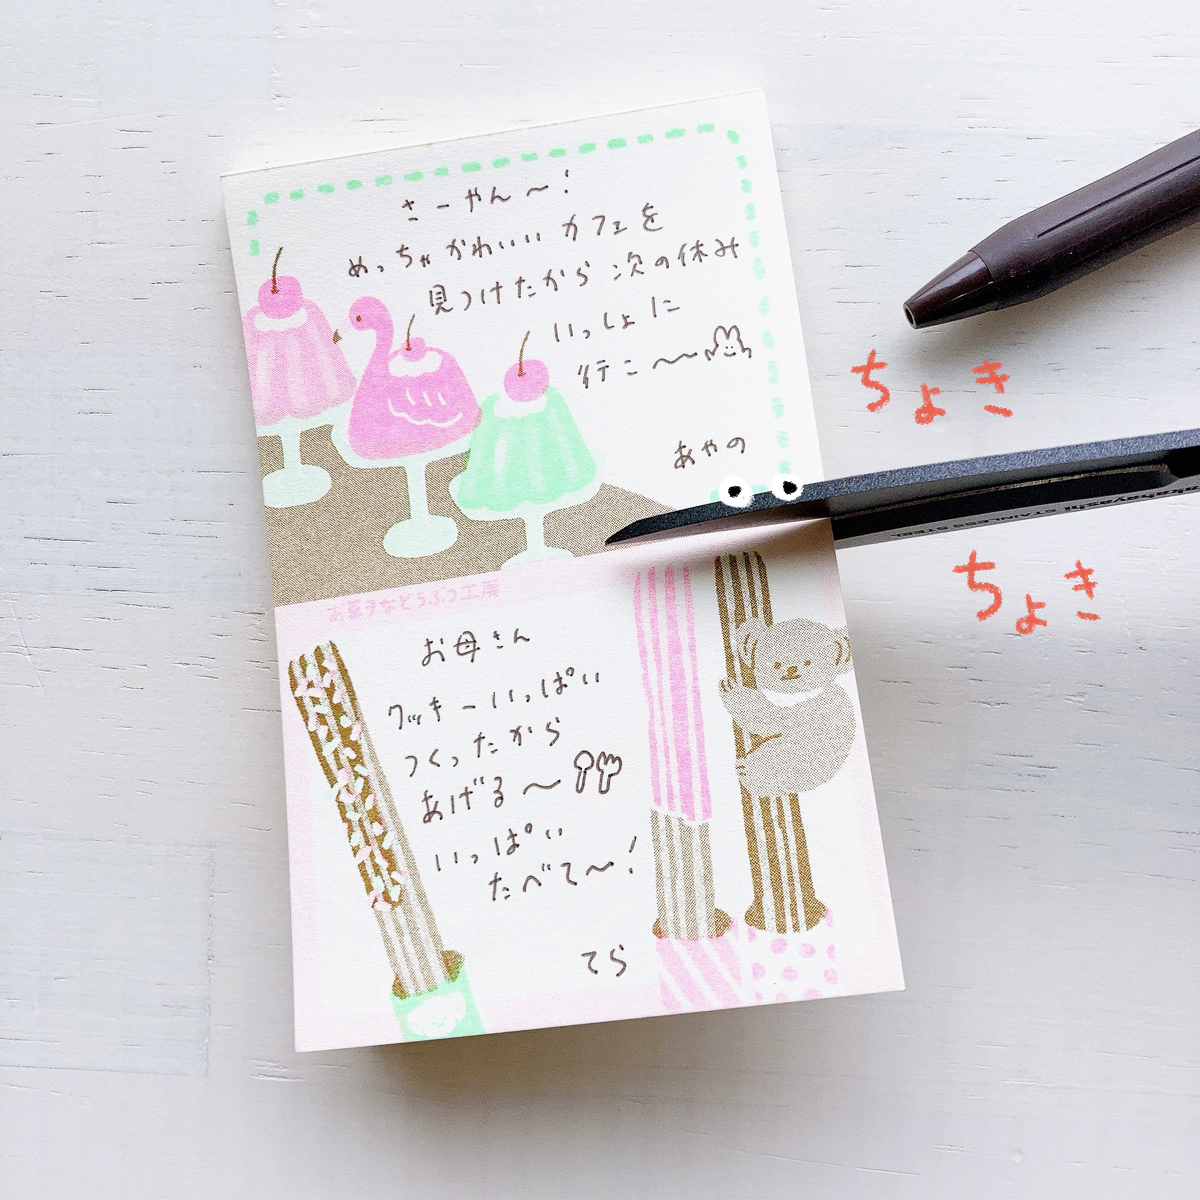 さーやん〜!
めっちゃかわいい カフェを
見つけたから 次の休み
いっしょに
行こ〜〜
あやの
お菓子などうぶつ工房
お母さん
クッキーいっぱい
つくったから
あげる〜
いっぱい
たべて〜!
てら
ちょき
STAINLESS STEEL
ちょき